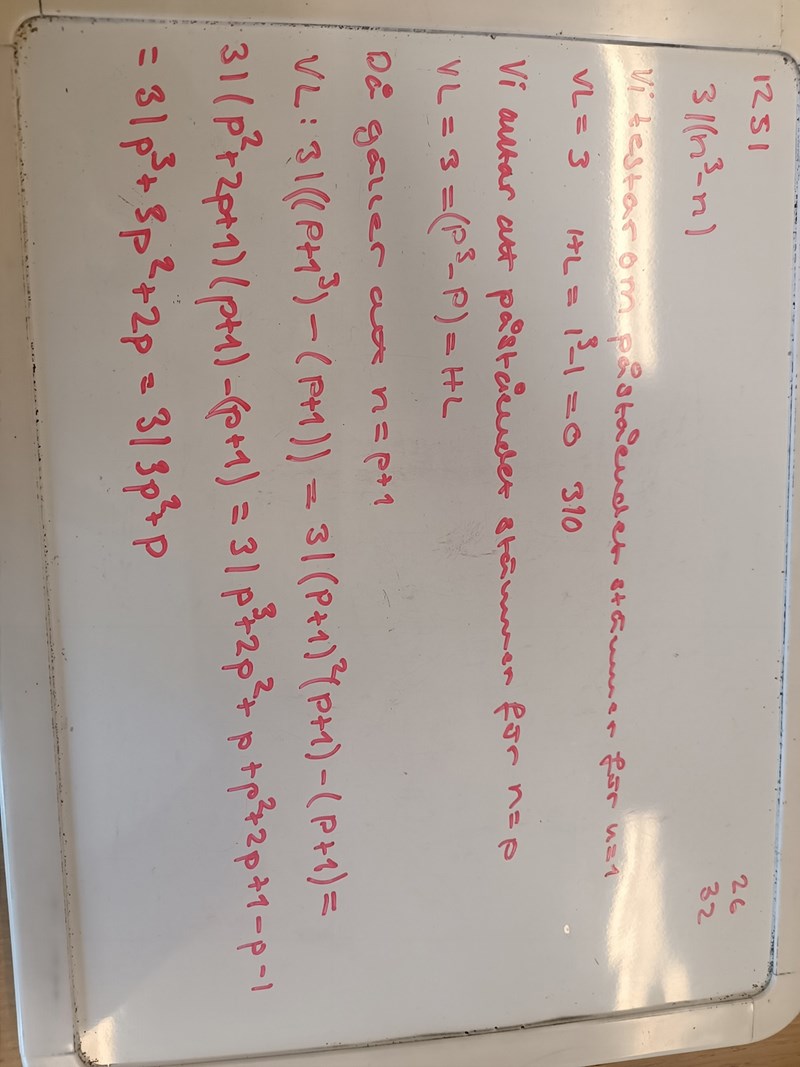 1251
26
32
3|(n³-n)
Vi testar om påståendet stämmer för n=1
VL = 3 HL = 1³-1 = 0 3|0
Vi antar att påståendet stämmer för n=p
VL = 3 = (p³-p) = HL
Då gäller att n = p+1
VL: 3|((p+1³) - (p+1)) = 3|(p+1)²(p+1)-(p+1) =
3|(p²+2p+1)(p+1)-(p+1) = 3|p³+2p²+p+p²+2p+1-p-1
= 3|p³+3p²+2p = 3|3p²+p